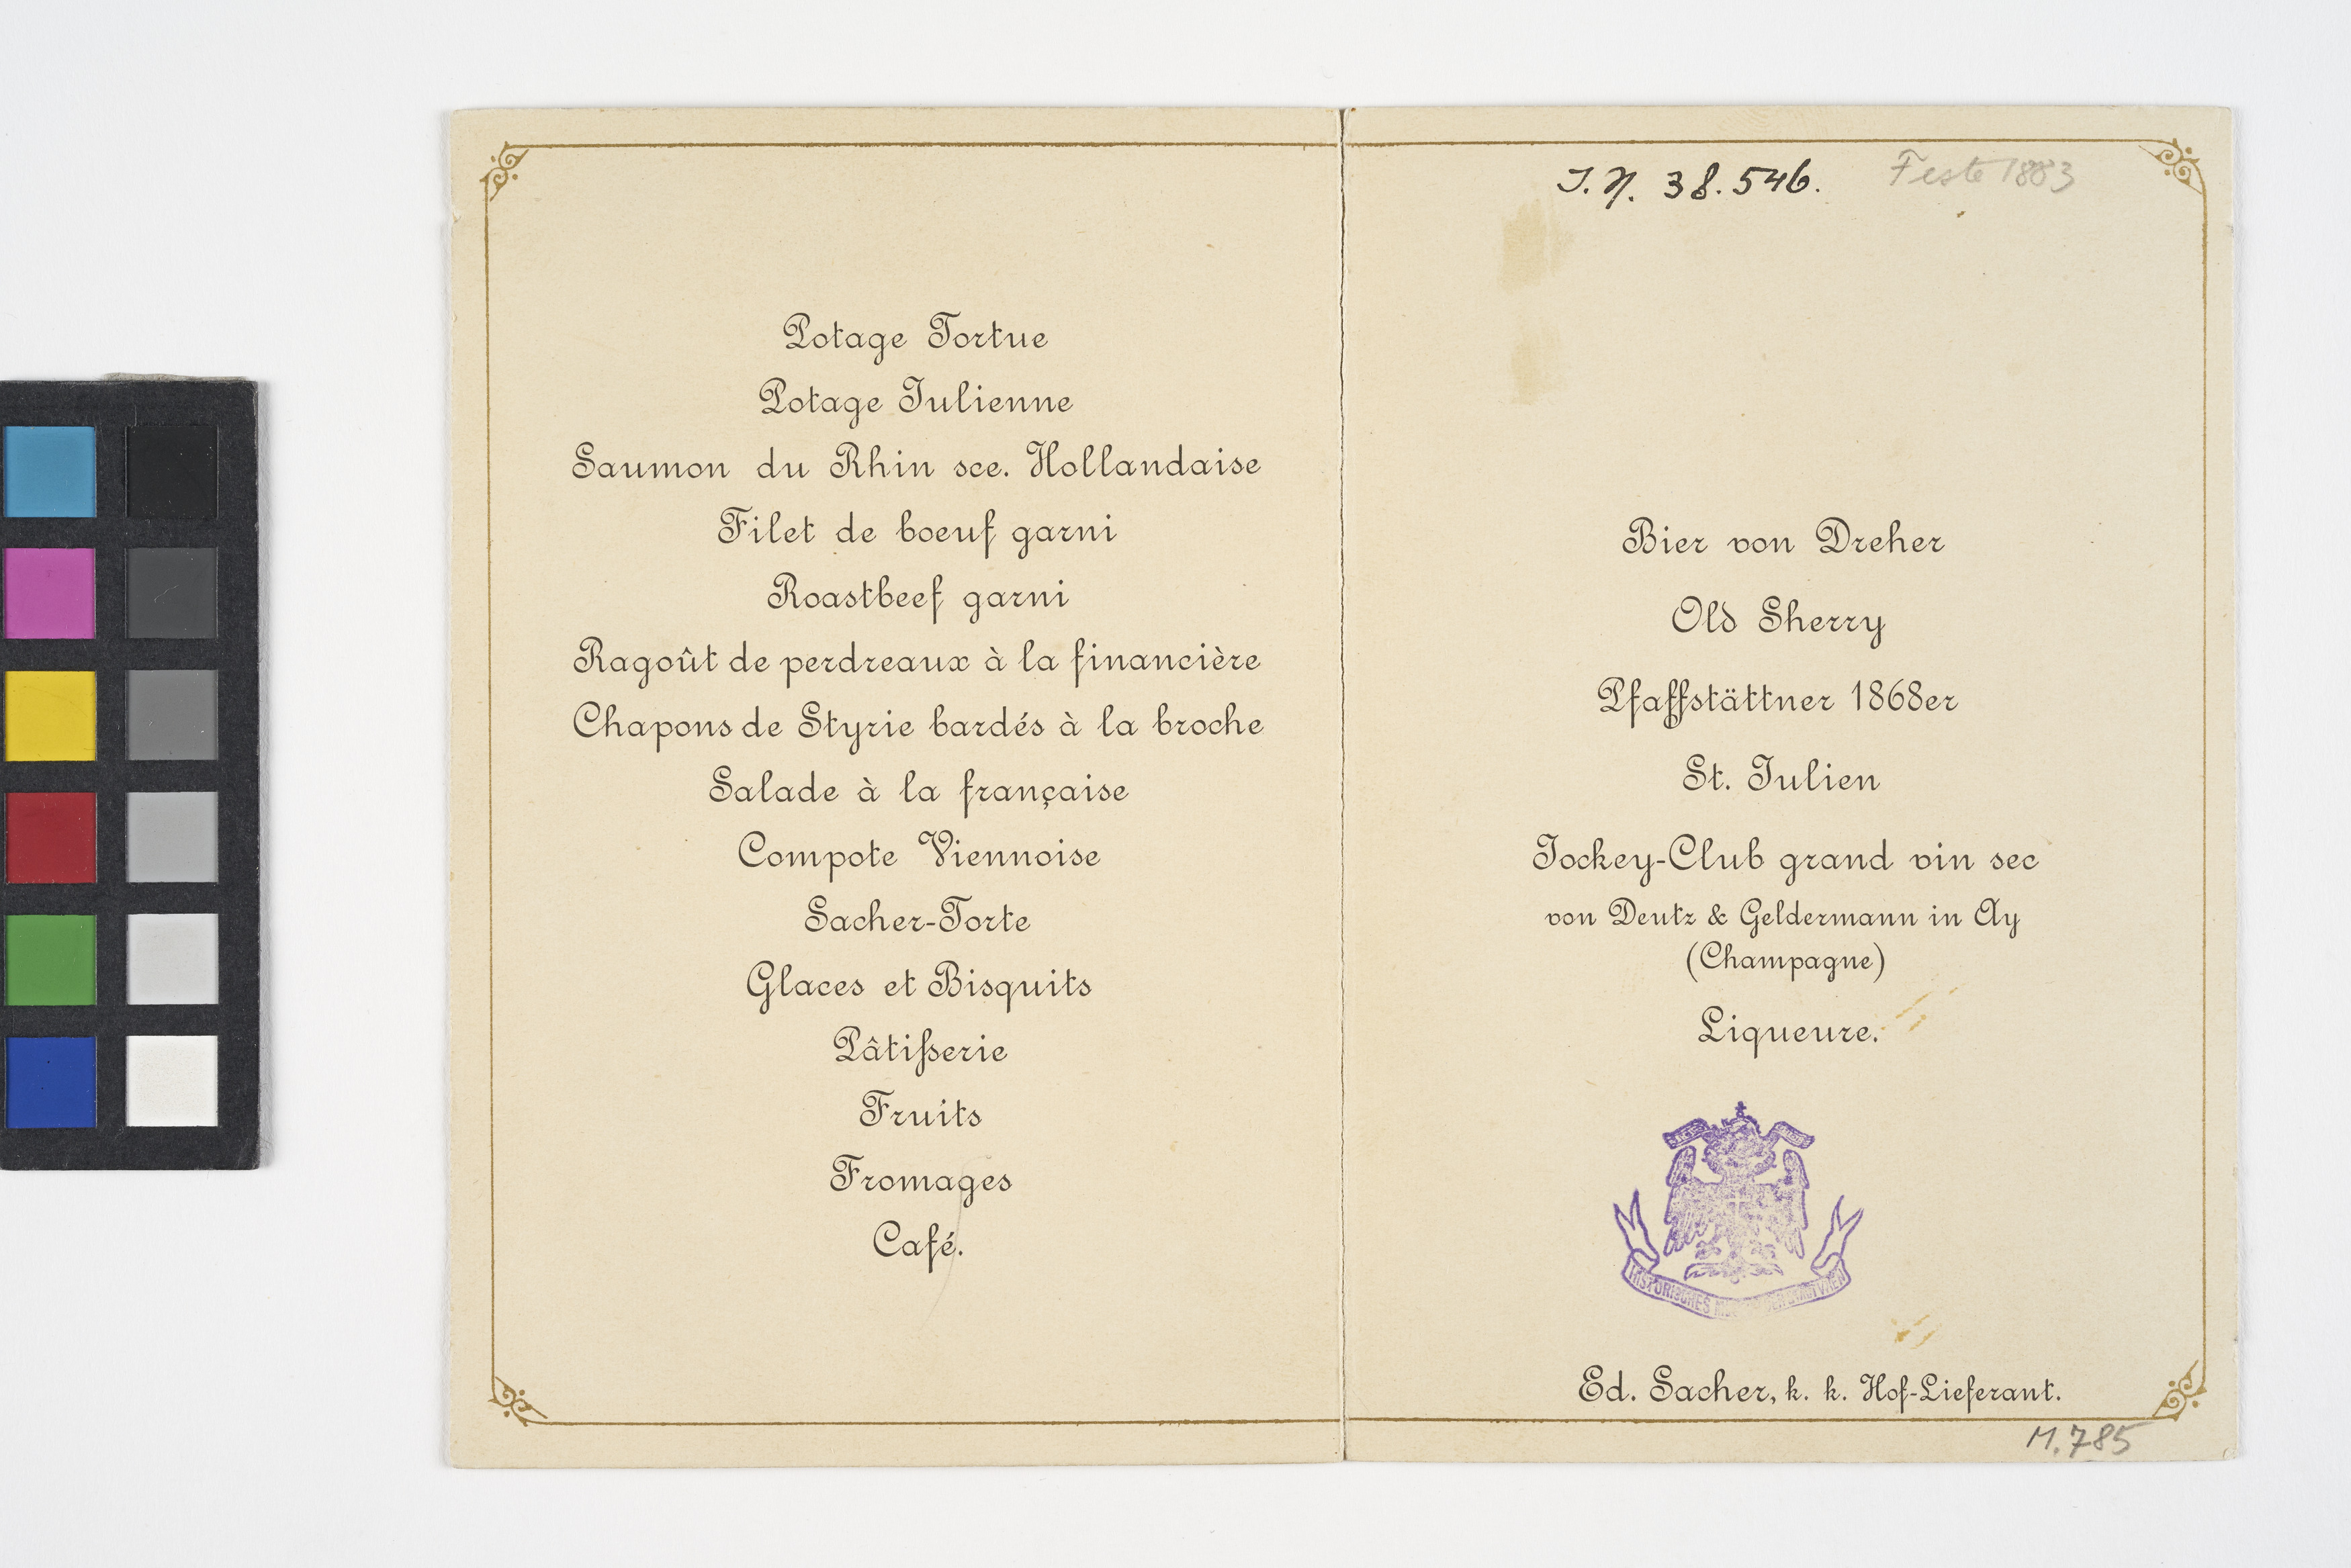 Potage Tortue
Potage Julienne
Saumon du Rhin sce. Hollandaise
Filet de boeuf garni
Roastbeef garni
Ragoût de perdreaux à la financière
Chapons de Styrie bardés à la broche
Salade à la française
Compote Viennoise
Sacher-Torte
Glaces et Bisquits
Pâtißerie
Fruits
Fromages
Café.
J.N. 38.546. Feste 1883
Bier von Dreher
Old Sherry
Pfaffstättner 1868er
St. Julien
Jockey-Club grand vin sec
von Deutz & Geldermann in Ay
(Champagne)
Liqueure.
HISTORISCHES
Ed. Sacher, k. k. Hof-Lieferant.
M. 785